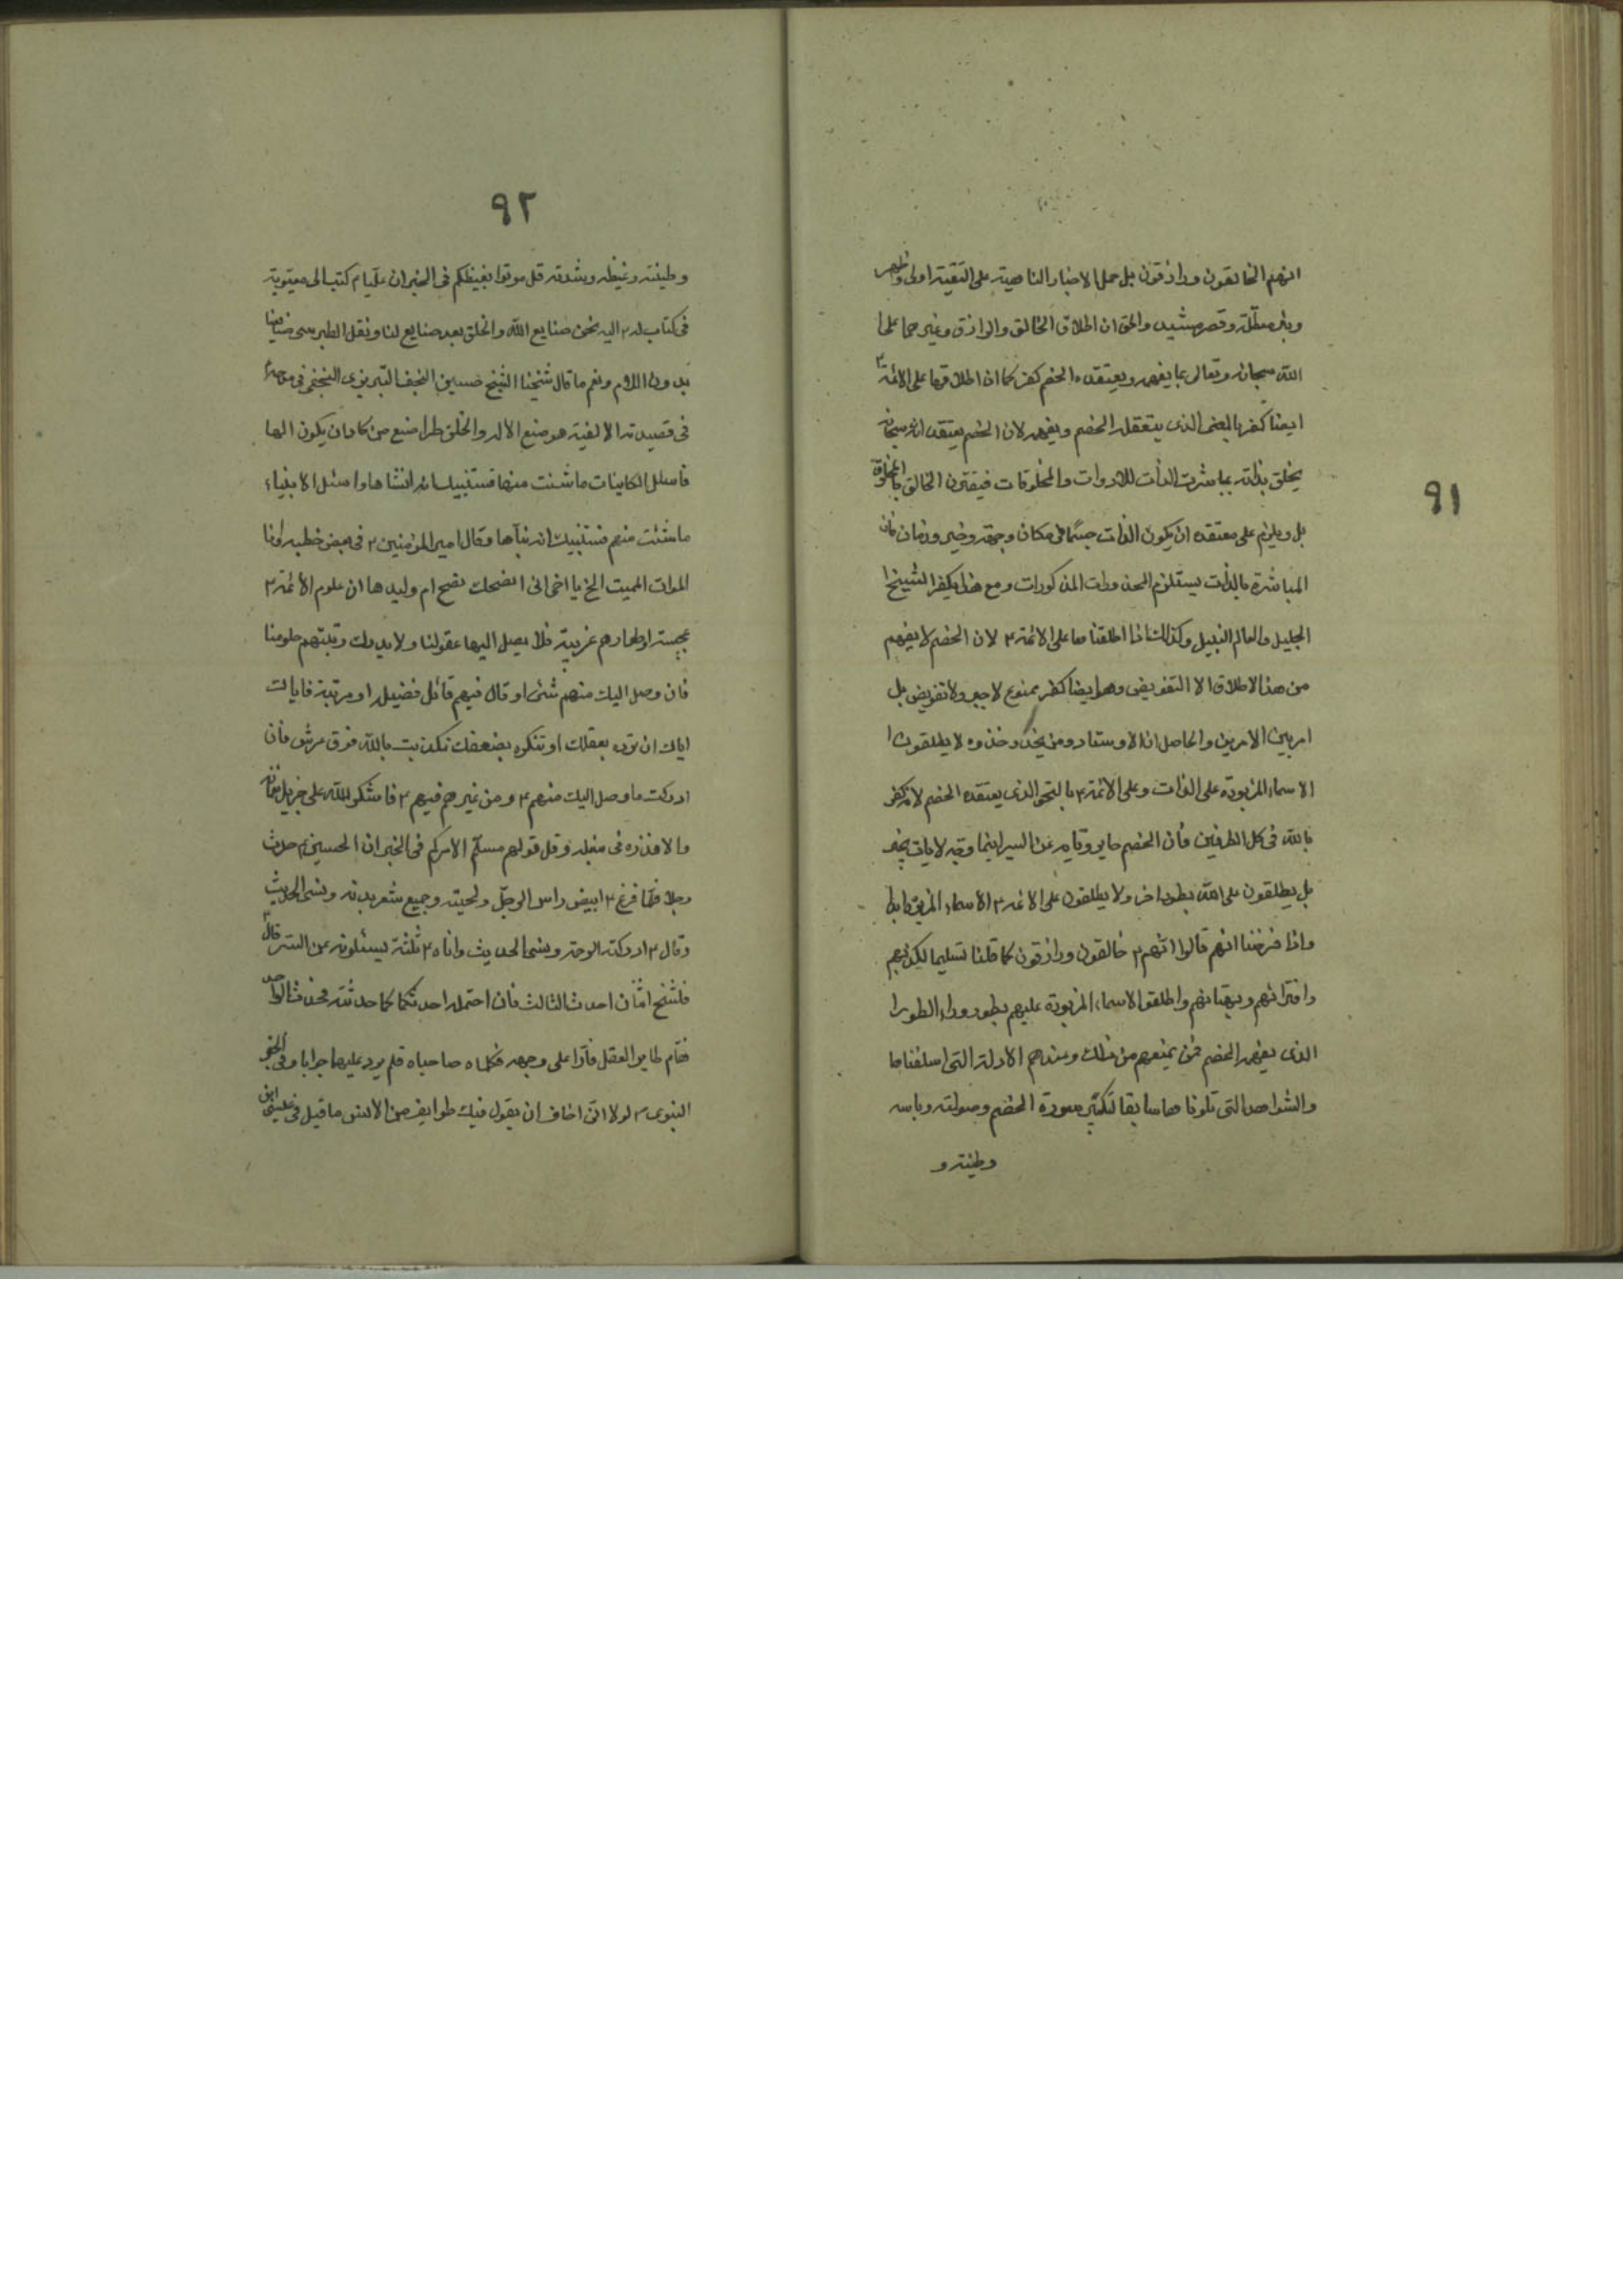 ٩١
انهم الخالقون ورازقون بل حمل الاخبار الناهية على التقية اولى واظهر
وبئر معطلة وقصر مشيد والحق ان اطلاق الخالق والرازق وغيرهما على
الله سبحانه وتعالى بما يفهمه ويعتقده الخصم كفر كما ان اطلاقهما على الائمة ٢
ايضا كفر بالمعنى الذى يتعقله الخصم ويفهمه لان الخصم يعتقد انه سبحانه
يخلق بذاته بمباشرت الذات للادوات والمخلوقات فيقترن الخالق بالمخلوق
بل ويلزم على معتقده ان يكون الذات جسما فى مكان وجهة وحيز وزمان فان
المباشرة بالذات يستلزم المحذورات المذكورات ومع هذا يكفر الشيخ
الجليل والعالم النبيل وكذلك اذا اطلقناها على الائمة ٢ لان الخصم لا يفهم
من هذا الاطلاق الا التفويض وهو ايضا كفر ممنوع لا جبر ولا تفويض بل
امر بين الامرين والحاصل ان الاوستاد ومن يحذو حذوه لا يطلقون
الاسماء المزبورة على الذات وعلى الائمة ٢ بالنحو الذى يعتقده الخصم لانه كفر
بالله فى كل الطرفين فأن الخصم
بل يطلقون على الله بطور اخر ولا يطلقون على الائمة ٢ الاسماء المزبورة ابدا
واذا فرضنا انهم قالوا انهم ٢ خالقون ورازقون كما قلنا تسليما لكذبهم
وافترائهم وبهتانهم واطلقوا الاسماء المزبورة عليهم بطور وراء الطور
الذى يفهمه الخصم فمن يمنعهم من ذلك وعندهم الادلة التى اسلفناها
والشواهد التى تلوناها سابقا لتكسر سورة الخصم وصولته وباسه
وطينته و
٩٢
وطينته وغيظه وشدته قل موتوا بغيظكم فى الخبر ان عليا م كتب الى معوية
فى كتاب له ٢ اليه نحن صنايع الله والخلق بعد صنايع لنا ونقل الطبرسى صنايعنا
بدون اللام ونعم ما قال شيخنا الشيخ حسين النجف التبريزى النجفى فى مدحه
فى قصيدته الالفية هو صنع الاله والخلق طرا صنع من كاد ان يكون الها
فاسئل الكاينات ما شئت منها فستنبيك انه انشاها واسئل الانبياء
ما شئت منهم فستنبيك انه نبآها وقال امير المؤمنين ٢ فى بعض خطبه وانا
الموات المميت الخ يا اخى انى انصحك نصح ام وليدها ان علوم الائمة ٢
عجيبة واطوارهم غريبة فلا يصل اليها عقولنا ولا يدرك رتبتهم حلومنا
فان وصل اليك منهم شئ او قال فيهم قائل فضيلة او مرتبة فاياك
اياك ان ترده بعقلك او تنكره بضعفك تكذبت بالله فوق عرشه فأن
ادركت ما وصل اليك منهم ٢ ومن غيرهم فيهم ٢ فاشكر لله على جزيل نعمائه
والا فذره فى سنبله وقل قولهم مسلم الامركم فى الخبر ان الحسين ٢ حدث
رجلا فلما فرغ ٢ ابيض راس الرجل ولحيته وجميع شعر بدنه ونسى الحديث
وقال ٢ ادركته الرحمة ونسى الحديث واتاه ٢ ثلثة يسئلونه عن السر قال ٢
فليتنح اثنان احدث الثالث فأن احتمله احدثكما كما حدثته فحدث الواحد
فقام طاير العقل فارا على وجهه فكلماه صاحباه فلم يرد عليهما جوابا وفى الخبر
النبوى ٢ لولا انى اخاف ان يقول فيك طوايف من الامتى ما قيل فى عيسى ابن